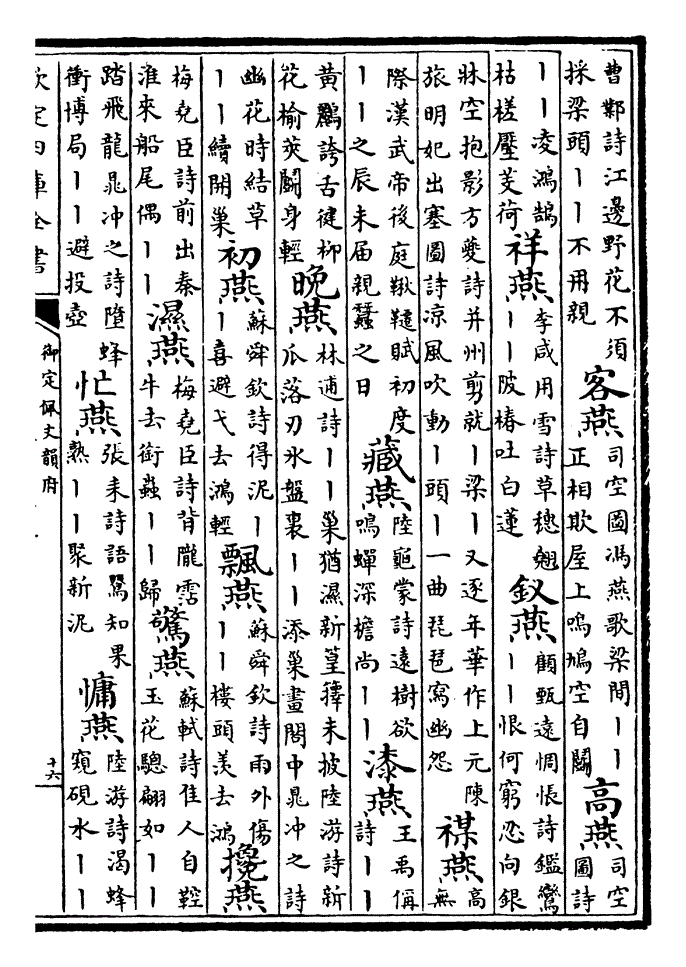 曹鄴詩江邊野花不須採梁頭丨丨不用親客燕司空圖馮燕歌梁間丨丨正相欺屋上鳴鳩空自鬭高燕司空圖詩
丨丨凌鴻鵠枯槎壓芰荷祥燕李咸用雪詩草穗翹丨丨陂椿吐白蓮釵燕顧甄遠惆悵詩鑑鸞丨丨恨何窮忍向銀
牀空抱影方夔詩并州剪就丨梁丨又逐年華作上元陳旅明妃出塞圖詩凉風吹動丨頭丨一曲琵琶寫幽怨禖燕高無
際漢武帝後庭鞦韆賦初度丨丨之辰未届親蠶之日藏燕陸龜蒙詩遠樹欲鳴蟬深檐尚丨丨漆燕王禹偁詩丨丨
黄鸝誇舌健柳花榆莢鬭身輕晚燕林逋詩丨丨巢猶濕新篁籜未披陸游詩新瓜落刃氷盤裏丨丨添巢畫閣中晁冲之詩
幽花時結草丨丨續開巢初燕蘇舜欽詩得泥丨丨喜避弋去鴻輕飄燕蘇舜欽詩雨外傷丨丨樓頭羨去鴻攙燕
梅堯臣詩前出秦淮來船尾偶丨丨濕燕梅堯臣詩背隴霑牛去銜蟲丨丨歸驚燕蘇軾詩佳人自鞚玉花驄翩如丨丨
踏飛龍晁冲之詩墮蜂衝博局丨丨避投壺忙燕張耒詩語鶯知果熟丨丨聚新泥慵燕陸游詩渴蜂窺硯水丨丨
欽定四庫全書
御定佩文韻府
十六